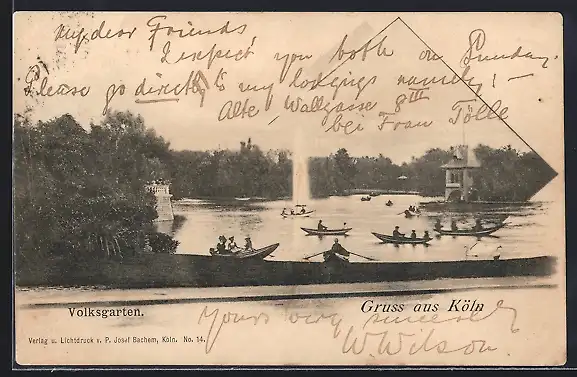 My dear Friends,
I expect you both on Sunday.
Please go directly to my lodgings namely: —
Alte Wallgasse 8 III
bei Frau Tölle
Volksgarten.
Gruss aus Köln
Yours very sincerely
W. Wilson.
Verlag u. Lichtdruck v. P. Josef Bachem, Köln. No. 14.